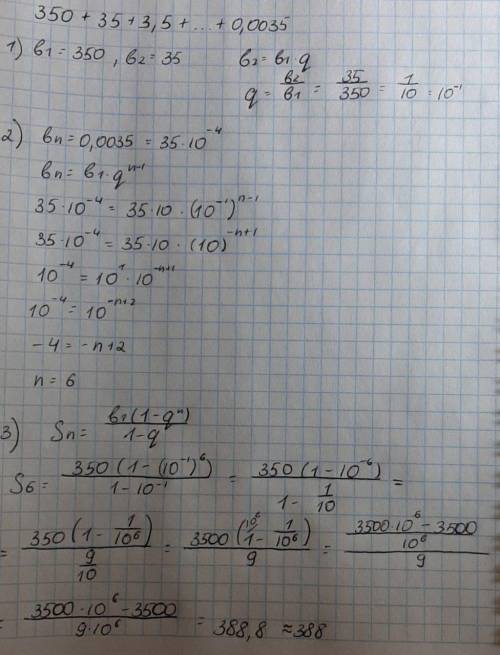 350 + 35 + 3,5 + ... + 0,0035
1) в₁ = 350 , в₂ = 35 в₂ = в₁·q
q = в₂/в₁ = 35/350 = 1/10 = 10⁻¹
2) вn = 0,0035 = 35·10⁻⁴
вn = в₁·qⁿ⁻¹
35·10⁻⁴ = 35·10·(10⁻¹)ⁿ⁻¹
35·10⁻⁴ = 35·10·(10)⁻ⁿ⁺¹
10⁻⁴ = 10¹·10⁻ⁿ⁺¹
10⁻⁴ = 10⁻ⁿ⁺²
-4 = -n+2
n = 6
3) Sn = в₁(1-qⁿ)/1-q
S6 = 350(1-(10⁻¹)⁶)/1-10⁻¹ = 350(1-10⁻⁶)/1-1/10 =
= 350(1-1/10⁶)/9/10 = 3500(10⁶ 1-1/10⁶)/9 = 3500·10⁶-3500/10⁶/9
= 3500·10⁶-3500/9·10⁶ = 388,8 ≈388